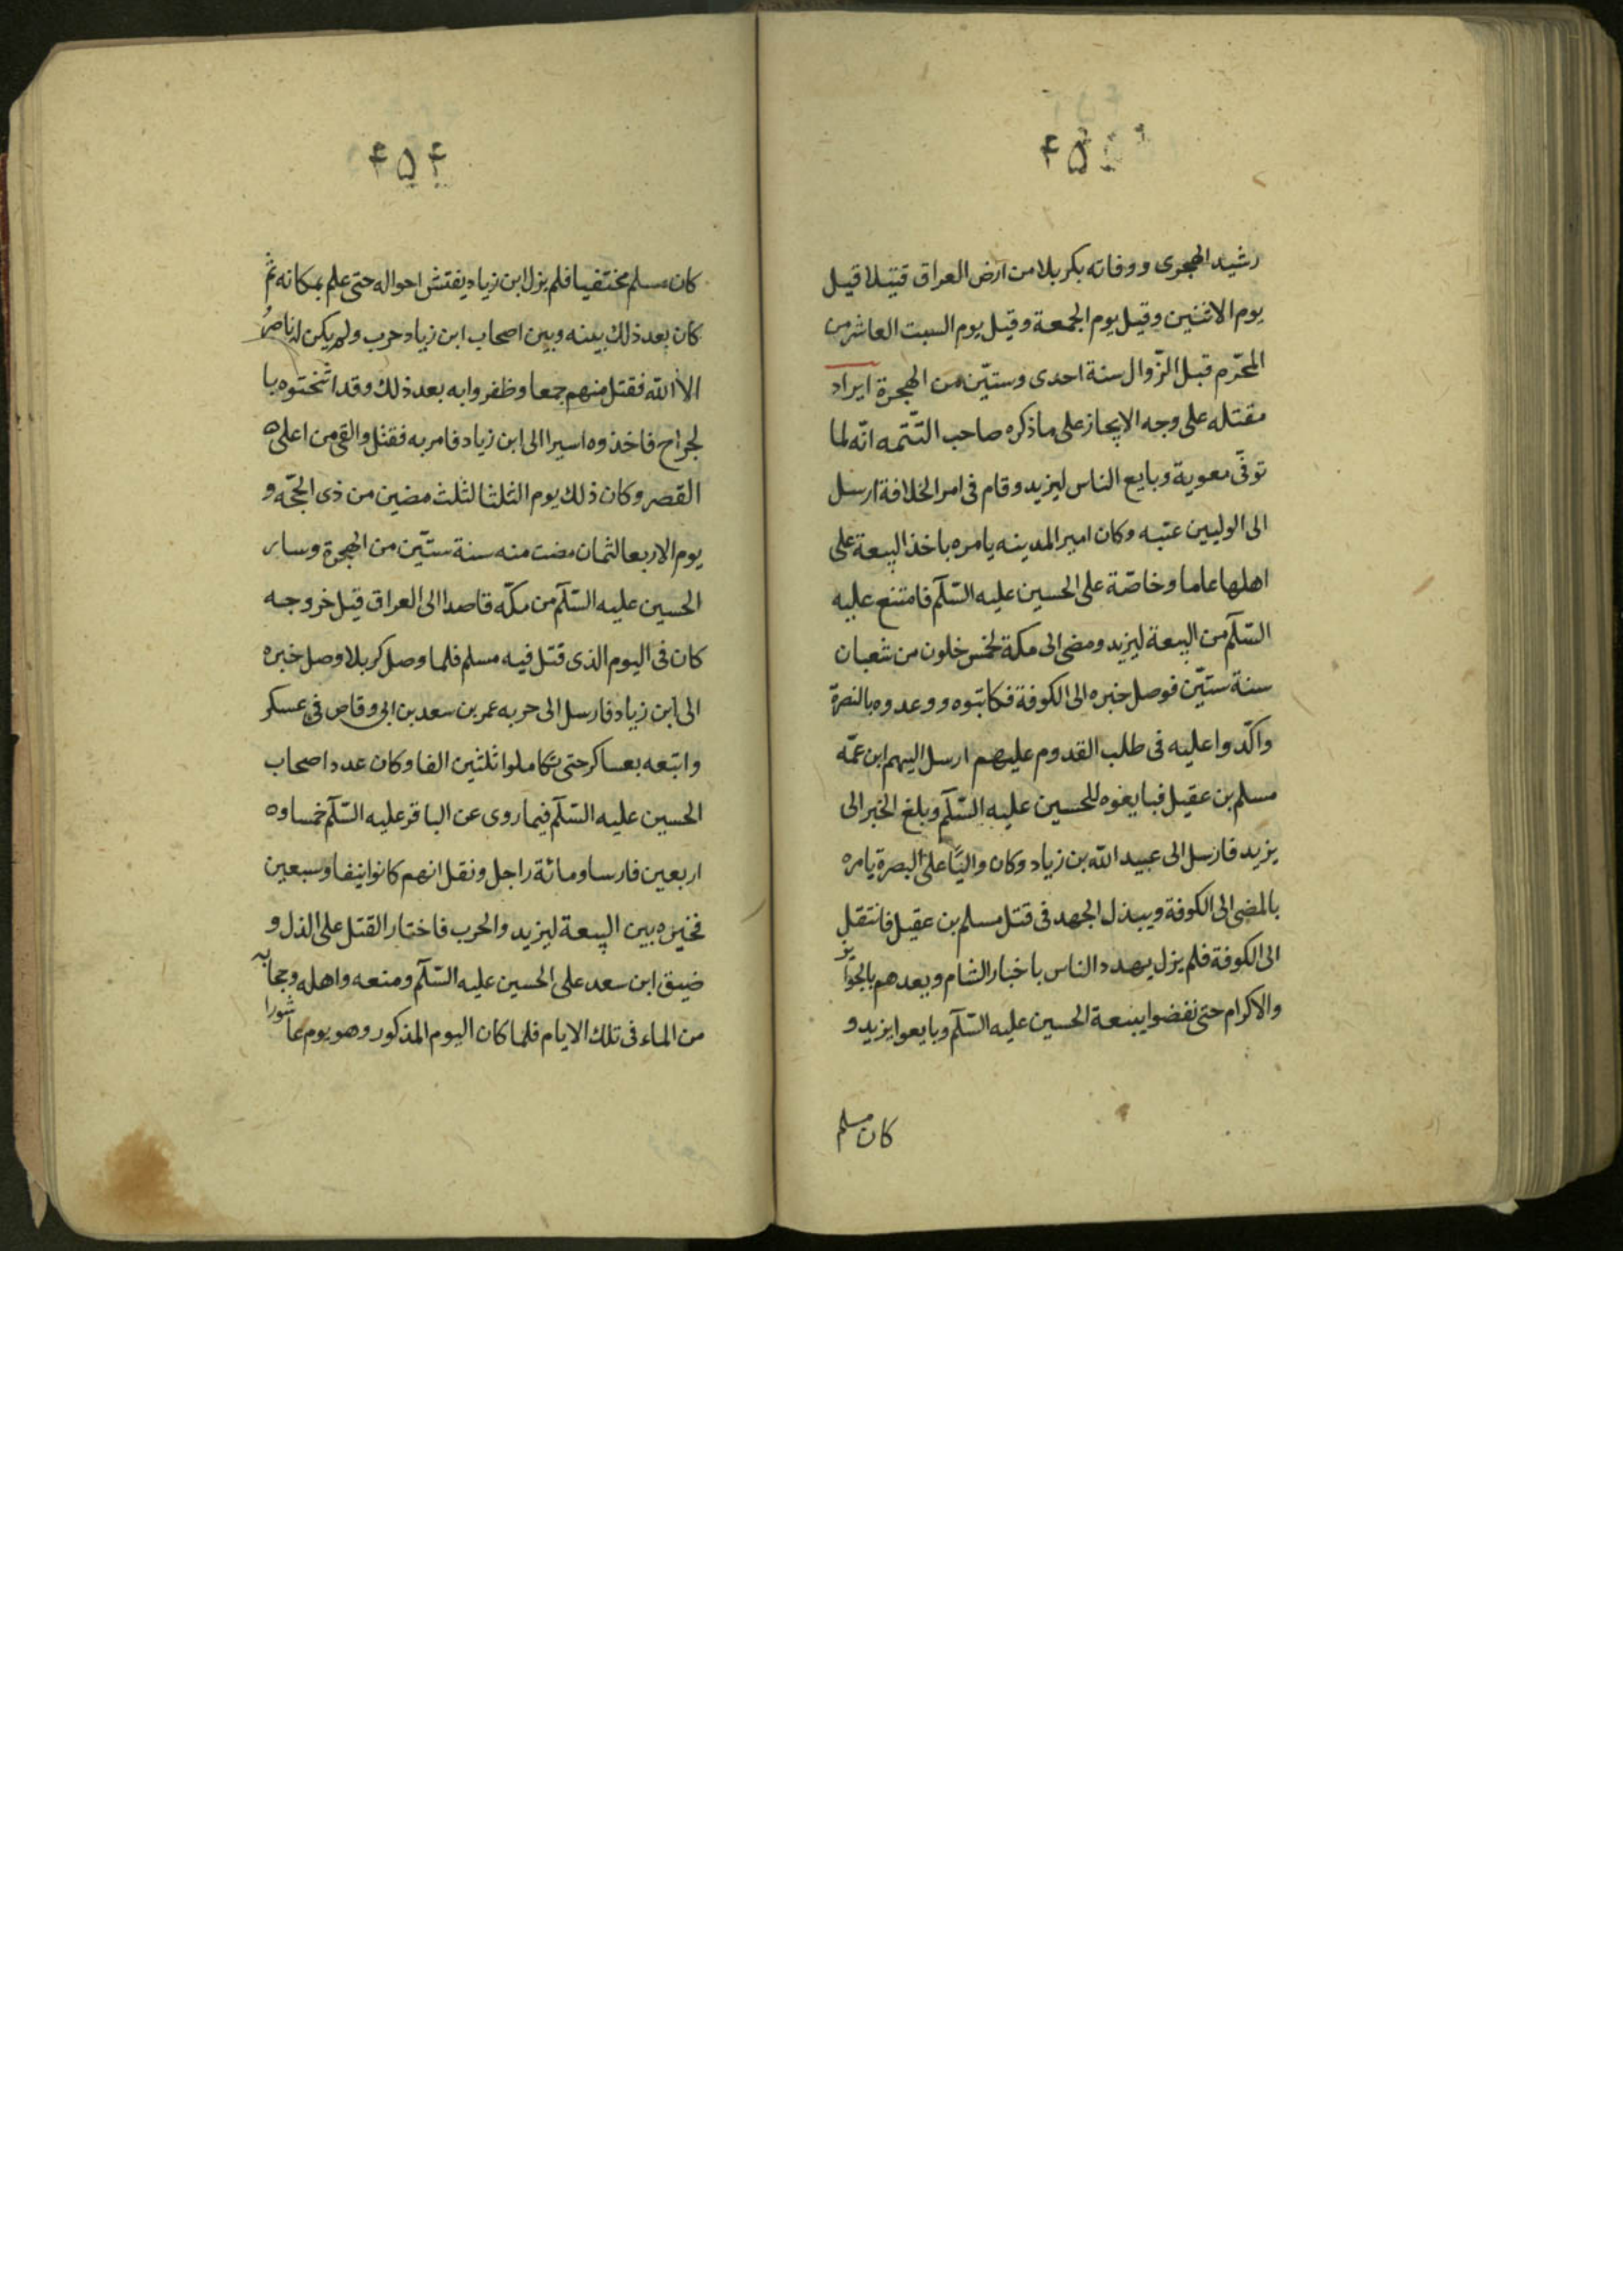 رشيد الهجرى ووفاته بكربلا من ارض العراق قتيلا قيل
يوم الاثنين وقيل يوم الجمعة وقيل يوم السبت العاشر من
المحرّم قبل الزّوال سنة احدى وستّين من الهجرة ايراد
مقتله على وجه الايجاز على ما ذكره صاحب التتمه انّه لما
توفّى معوية وبايع الناس ليزيد وقام فى امر الخلافة ارسل
الى الوليين عتبه وكان امير المدينه يامره باخذ البيعة على
اهلها عاما وخاصّة على الحسين عليه السّلام فامتنع عليه
السّلام من البيعة ليزيد ومضى الى مكة لخمس خلون من شعبان
سنة ستّين فوصل خبره الى الكوفة فكاتبوه ووعدوه بالنصرة
واكّدوا عليه فى طلب القدوم عليهم ارسل اليهم ابن عمّه
مسلم بن عقيل فبايعوه للحسين عليه السّلام وبلغ الخبر الى
يزيد فارسل الى عبيد الله بن زياد وكان واليًا على البصرة يامره
بالمضى الى الكوفة ويبذل الجهد فى قتل مسلم بن عقيل فانتقل
الى الكوفة فلم يزل يهدد الناس باخبار الشام ويعدهم بالجوايز
والاكرام حتى نفضوا ببيعة الحسين عليه السّلام وبايعوا يزيد و
كان مسلم
۴۵۴
كان مسلم مختفيا فلم يزل ابن زياد يفتش احواله حتى علم بمكانه ثم
كان بعد ذلك بينه وبين اصحاب ابن زياد حرب ولم يكن له ناصرُ
الا الله فقتل منهم جمعا وظفروا به بعد ذلك وقد اثختوه با
لجراح فاخذوه اسيرا الى ابن زياد فامر به فقتل والقى من اعلى
القصر وكان ذلك يوم الثلثا لثلث مضين من ذى الحجّه و
يوم الاربعا لثمان مضت منه سنة ستّين من الهجرة وساير
الحسين عليه السّلام من مكّه قاصدا الى العراق قيل خروجه
كان فى اليوم الذى قتل فيه مسلم فلما وصل كربلا وصل خبره
الى ابن زياد فارسل الى حربه عمر بن سعد بن ابى وقاص فى عسكر
واتبعه بعساكر حتى تكاملوا ثلثين الفا وكان عدد اصحاب
الحسين عليه السّلام فيما روى عن الباقر عليه السّلام خمسا وه
اربعين فارسا ومائة راجل ونقل انهم كانوا نيفا وسبعين
فخيره بين البيعة ليزيد والحرب فاختار القتل على الذل و
ضيق ابن سعد على الحسين عليه السّلام ومنعه واهله وحجابه
من الماء فى تلك الايام فلما كان اليوم المذكور وهو يوم عاشورا